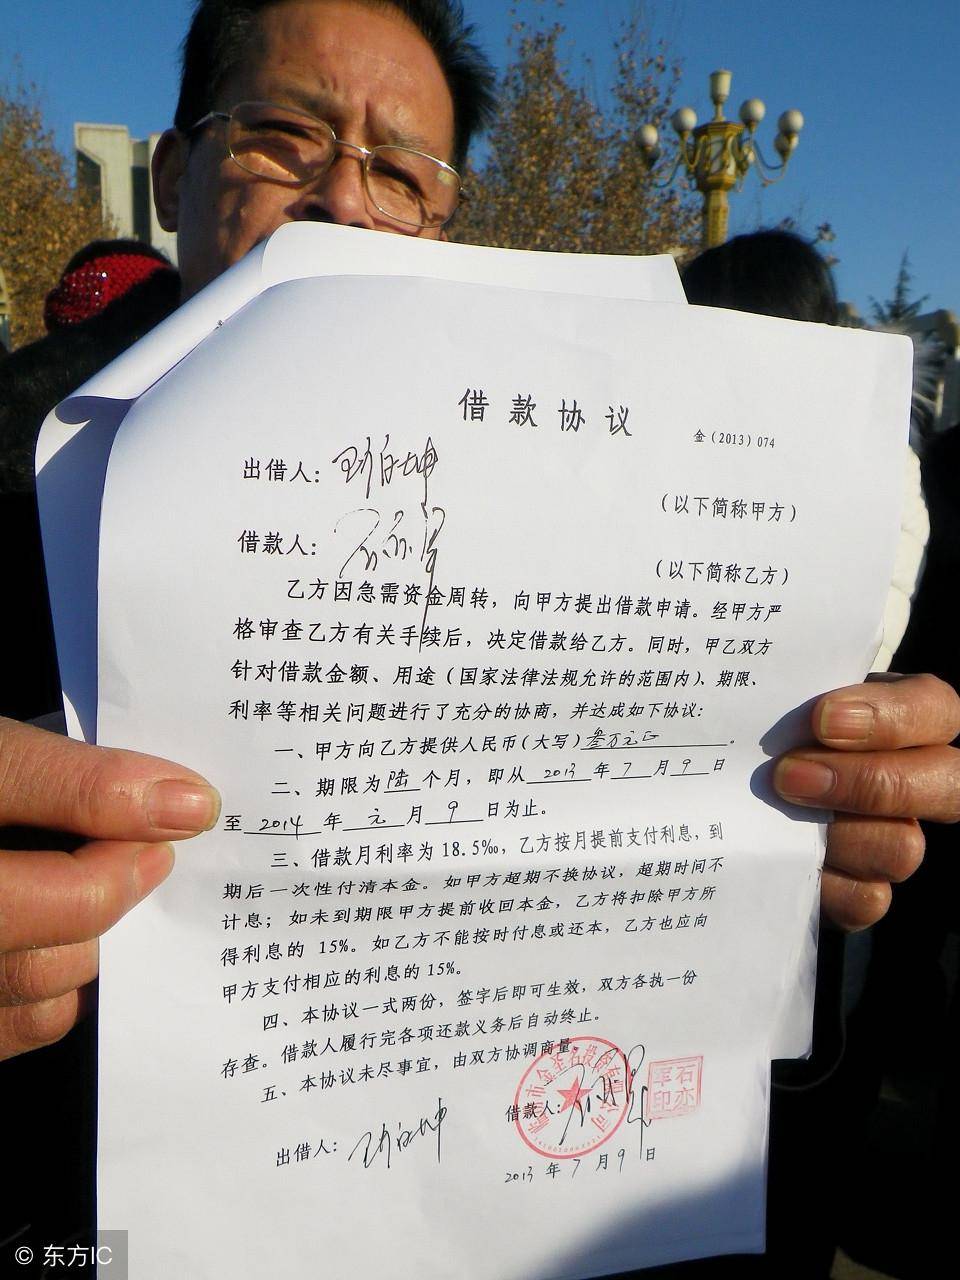 借款协议
金(2013)074
出借人:
(以下简称甲方)
借款人:
(以下简称乙方)
乙方因急需资金周转,向甲方提出借款申请。经甲方严
格审查乙方有关手续后,决定借款给乙方。同时,甲乙双方
针对借款金额、用途(国家法律法规允许的范围内)、期限、
利率等相关问题进行了充分的协商,并达成如下协议:
一、甲方向乙方提供人民币(大写)叁万元正。
二、期限为陆个月,即从2013年7月9日
至2014年元月9日为止。
三、借款月利率为18.5‰,乙方按月提前支付利息,到
期后一次性付清本金。如甲方超期不换协议,超期时间不
计息;如未到期限甲方提前收回本金,乙方将扣除甲方所
得利息的15%。如乙方不能按时付息或还本,乙方也应向
甲方支付相应的利息的15%。
四、本协议一式两份,签字后即可生效,双方各执一份
存查。借款人履行完各项还款义务后自动终止。
五、本协议未尽事宜,由双方协调商量。
出借人:
借款人:
石亦军印
2013年7月9日
© 东方IC